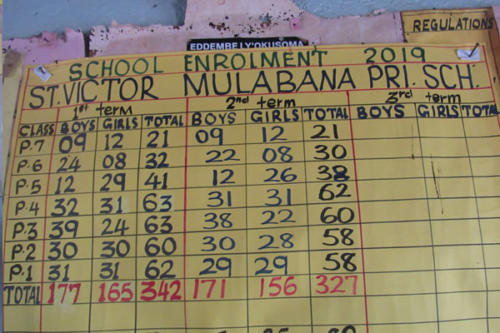 REGULATIONS
EDDEMBE LY'OKUSOMA
SCHOOL ENROLMENT 2019
ST. VICTOR MULABANA PRI. SCH.
1st term 2nd term 3rd term
CLASS BOYS GIRLS TOTAL BOYS GIRLS TOTAL BOYS GIRLS TOTAL
P.7 09 12 21 09 12 21
P.6 24 08 32 22 08 30
P.5 12 29 41 12 26 38
P.4 32 31 63 31 31 62
P.3 39 24 63 38 22 60
P.2 30 30 60 30 28 58
P.1 31 31 62 29 29 58
TOTAL 177 165 342 171 156 327